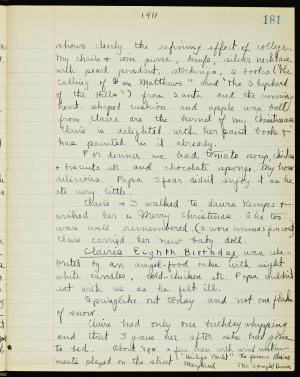 1911
181
shows clearly the refining effect of college.
My chain & coin purse, knife, silver necklace
with pearl pendant, stockings, 2 books ("The
Calling of Dan Matthews" and "The Shepherd
of the Hills") from Santa and the cunning
heart-shaped cushion and apple wax ball
from Claire are the kernel of my Christmas
Claire is delighted with her paint book &
has painted in it already.
For dinner we had tomato soup, chicken
& biscuits etc and chocolate sponge. My how
delicious. Papa dear didn't enjoy it as he
ate very little.
Claire & I walked to Laura Kemps &
wished her a Merry Christmas. She too
was well remembered
Claire carried her new baby doll.
Claire's Eighth Birthday was cele-
brated by an angel-food cake with eight
white candles, cold-chicken etc. Papa couldn't
eat with us as he felt ill.
Springlike out today and not one flake
of snow.
Claire had only one birthday whipping
and that I gave her after she had gone
to bed. About 9 p.m. a few men with wind instru-
ments played on the street
Maryland